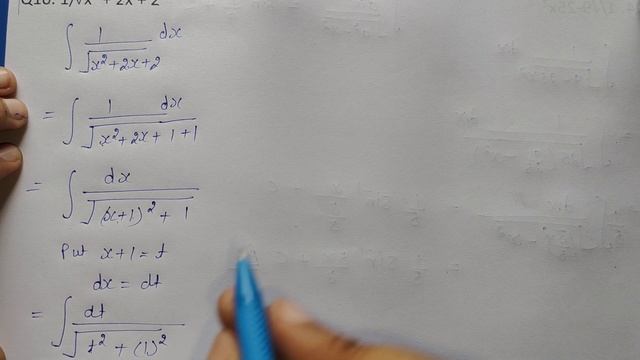 Q10: 1/√x² + 2x + 2
∫ 1/√(x²+2x+2) dx
= ∫ 1/√(x²+2x+1+1) dx
= ∫ dx/√((x+1)²+1)
Put x+1 = t
dx = dt
= ∫ dt/√(t²+(1)²)